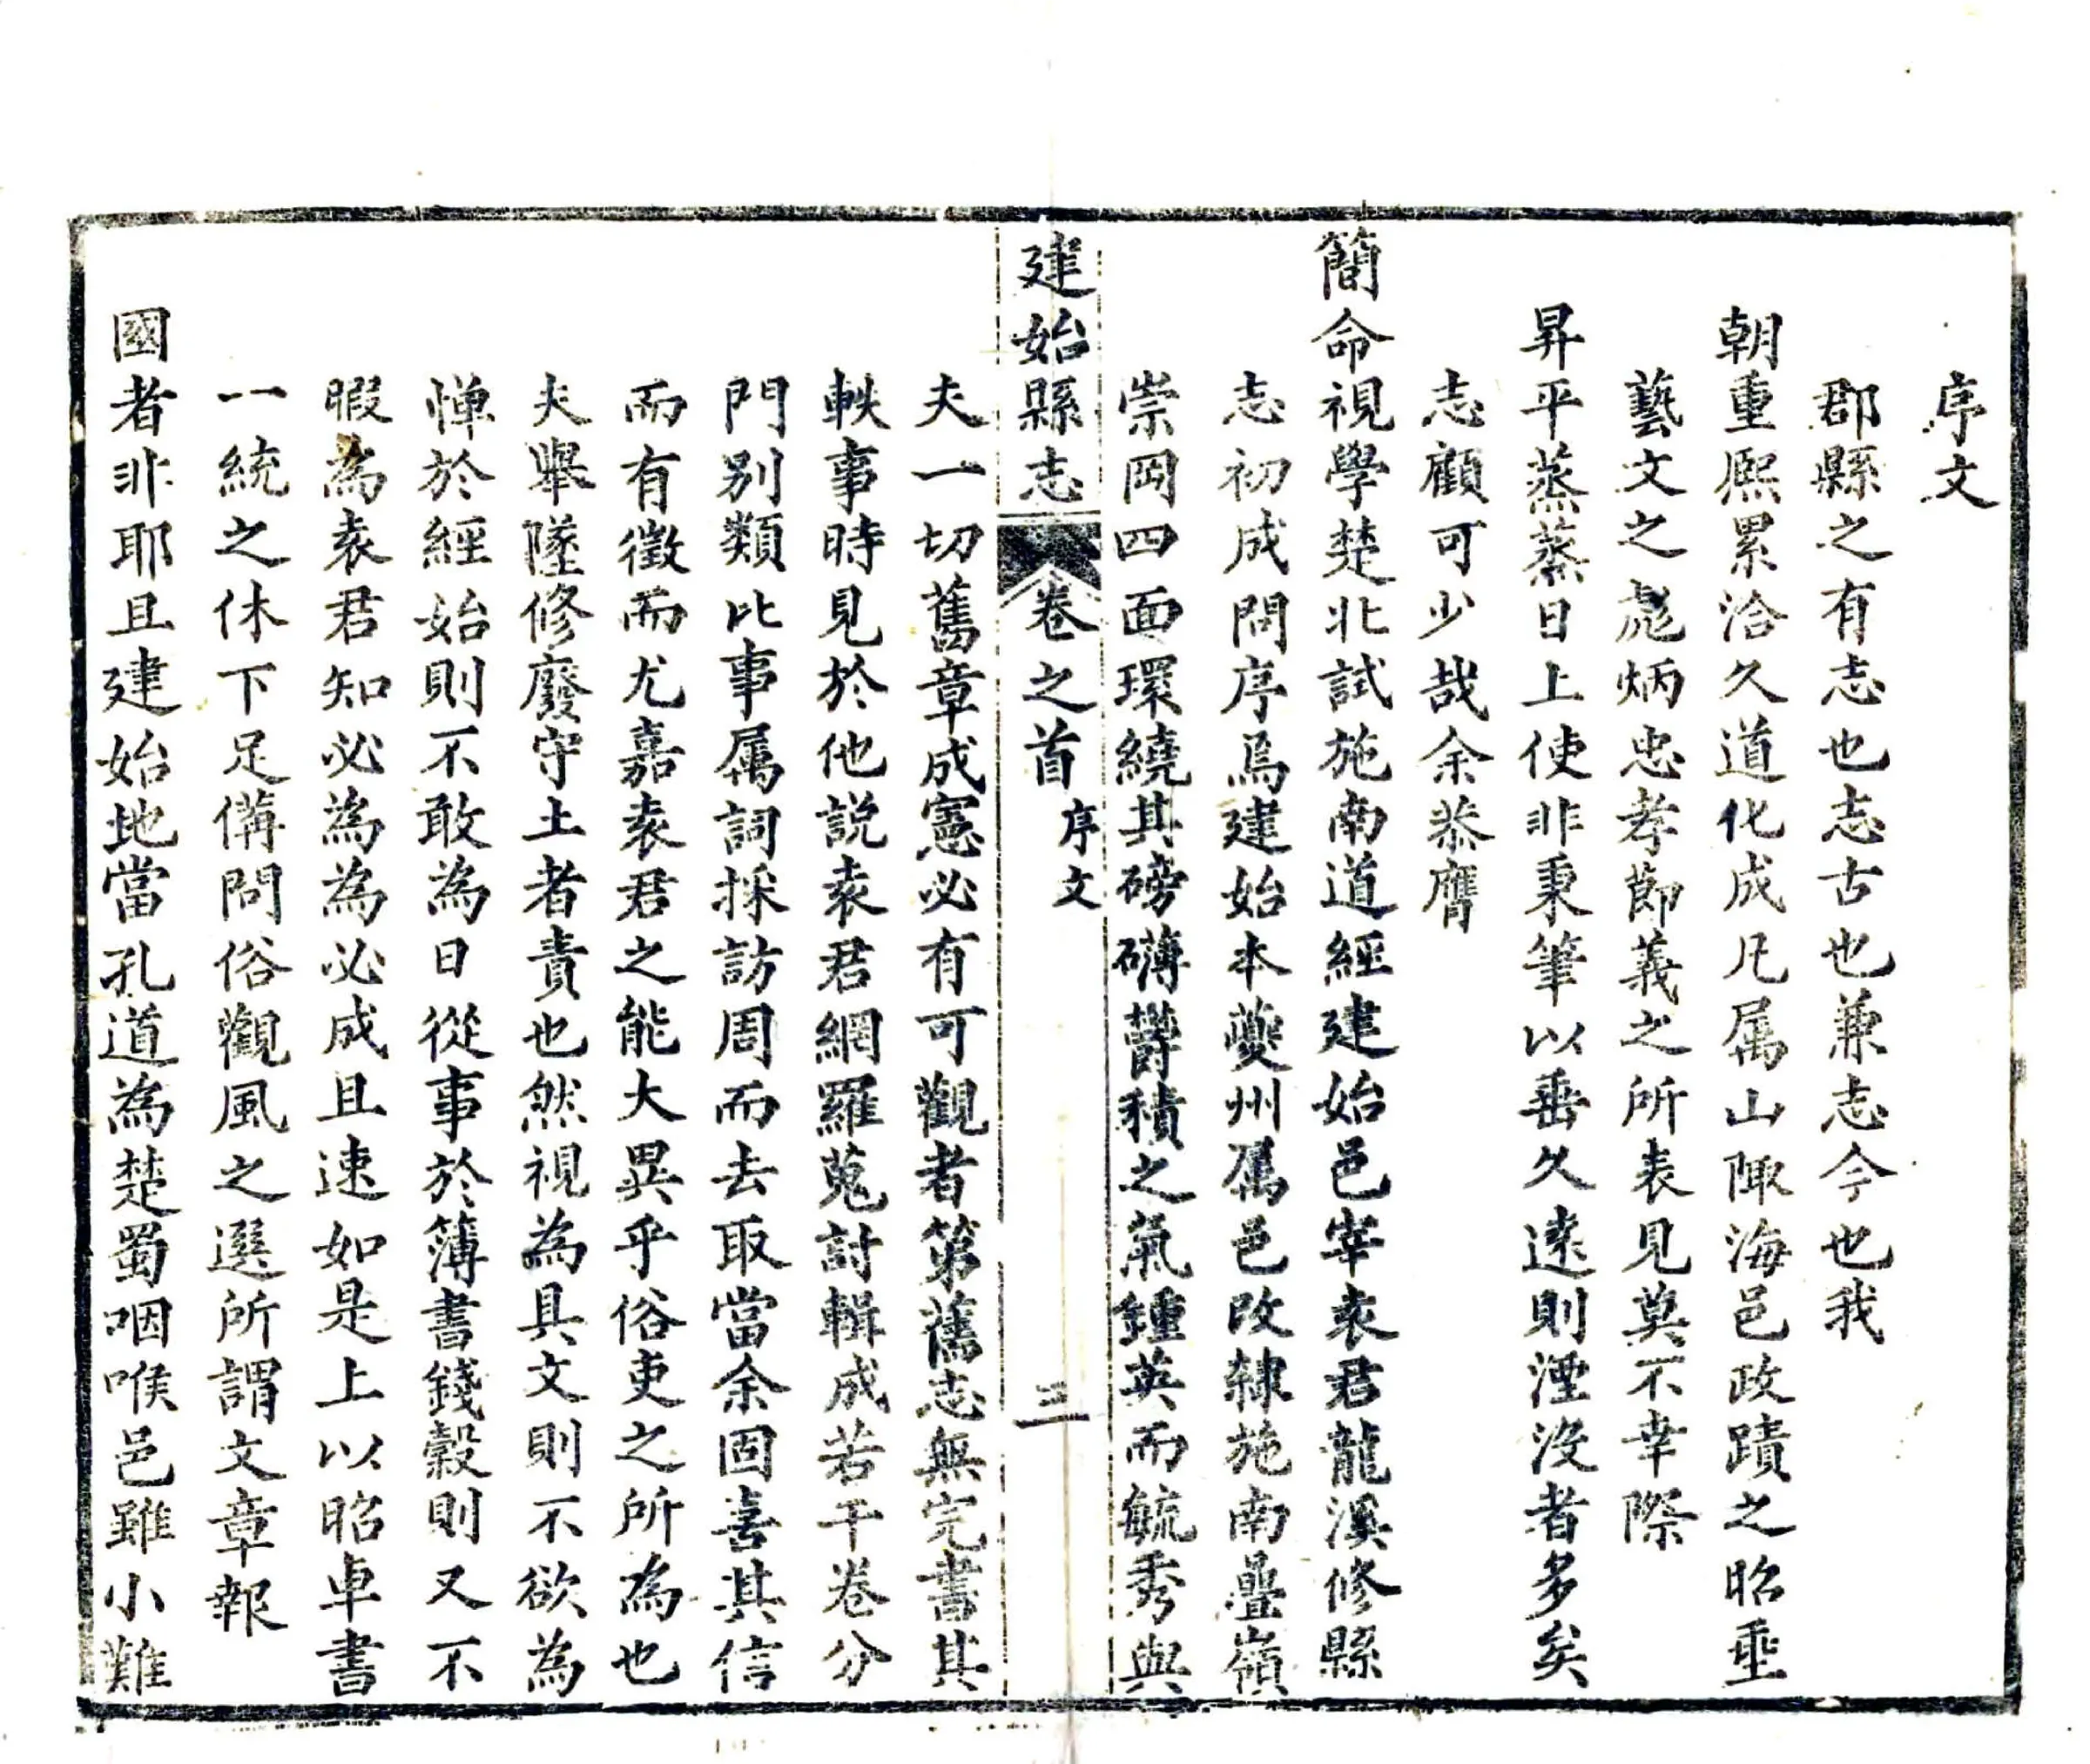 序文
郡縣之有志也志古也兼志今也我
朝重熈累洽久道化成凡属山陬海邑政蹟之昭垂
藝文之彪炳忠孝節義之所表見莫不幸際
昇平蒸蒸日上使非秉筆以垂久遠則湮没者多矣
志顧可少哉余恭膺
簡命視學楚北試施南道經建始邑宰袁君龍溪修縣
志初成問序焉建始本夔州属邑改隸施南疊嶺
崇岡四面環繞其磅礴欝積之氣鍾英而毓秀與
建始縣志 卷之首 序文 三
夫一切舊章成憲必有可觀者第舊志無完書其
軼事時見於他説袁君網羅蒐討輯成若干卷分
門别類比事属詞採訪周而去取當余固喜其信
而有徵而尤嘉袁君之能大異乎俗吏之所為也
夫舉墜修廢守土者責也然視為具文則不欲為
憚於經始則不敢為日從事於簿書錢穀則又不
暇為袁君知必為為必成且速如是上以昭車書
一統之休下足備問俗觀風之選所謂文章報
國者非耶且建始地當孔道為楚蜀咽喉邑雖小難